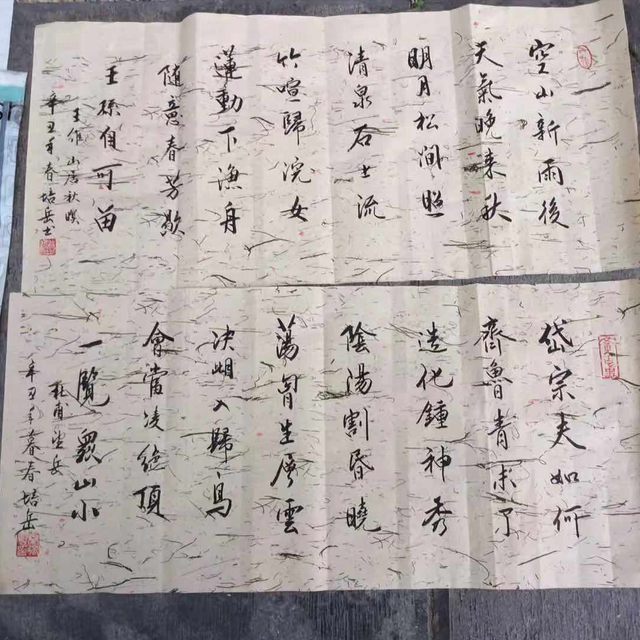 空山新雨後
天氣晚来秋
明月松澗照
清泉石上流
竹喧歸浣女
蓮動下漁舟
随意春芳歇
王孫自可留
山居秋暝
辛丑年春培岳书
岱宗夫如何
齊魯青未了
造化鍾神秀
陰陽割昏曉
蕩胷生層雲
决眦入歸鳥
會當凌絶頂
一覽衆山小
杜甫望岳
辛丑年暮春培岳